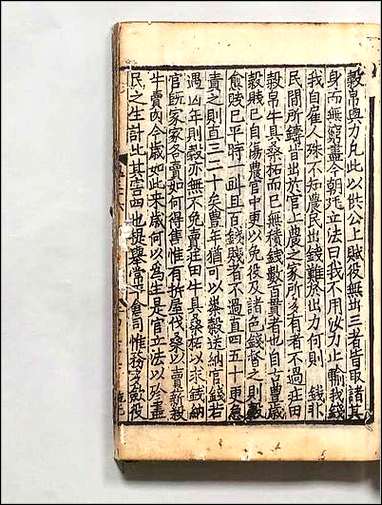 穀帛與力凡此以供公上賦役無出三者皆取諸其
身而無窮盡今朝廷立法曰我不用汝力止輸我錢
我自雇人殊不知農民出錢難於出力何則錢非
民間所鑄皆出於官上農之家所多有者不過庄田
穀帛牛具桑柘而已無積錢數百貫者也自古豐歲
穀賤已自傷農官中更以免役及諸色錢督之則穀
愈賤已平時一㪷直百錢賤者不過直四五十更急
責之則直三二十矣豐年猶可以糶穀送納官錢若
遇凶年則穀亦無不免賣庄田牛具桑柘以求錢納
官既家家各賣如何得售惟有拆屋伐桑以賣薪殺
牛賣肉今歲如此來歲何以為生是官立法以殄盡
民之生計此其害四也提舉常平倉司惟務多斂役